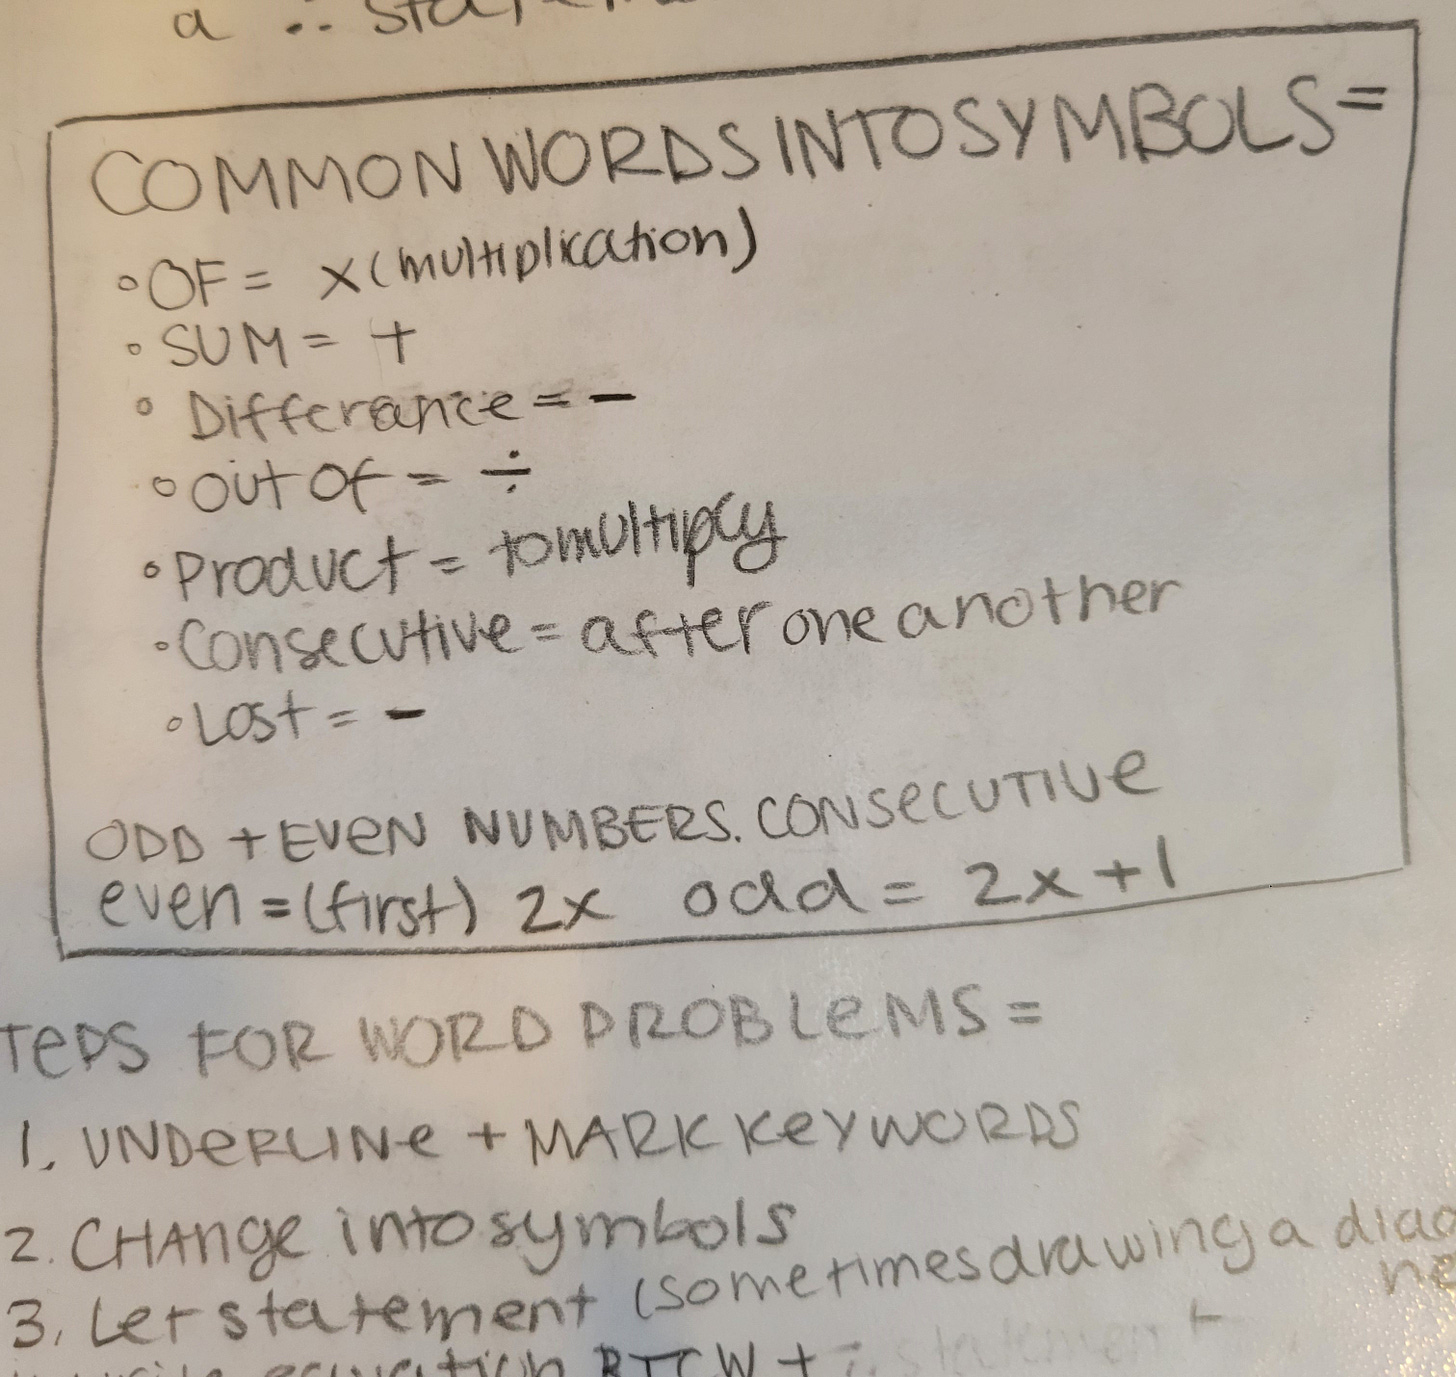 a ∴
COMMON WORDS INTO SYMBOLS =
◦ OF = x (multiplication)
◦ SUM = +
◦ Differance = -
◦ out of = ÷
◦ Product = to multiply
◦ Consecutive = after one another
◦ Lost = -
ODD + EVEN NUMBERS. CONSECUTIVE
even = (first) 2x odd = 2x + 1
TEPS FOR WORD PROBLEMS =
1. UNDERLINE + MARK KEY WORDS
2. CHANge into symbols
3. Let statement (sometimes drawing a diag
ne
equation BTCW +